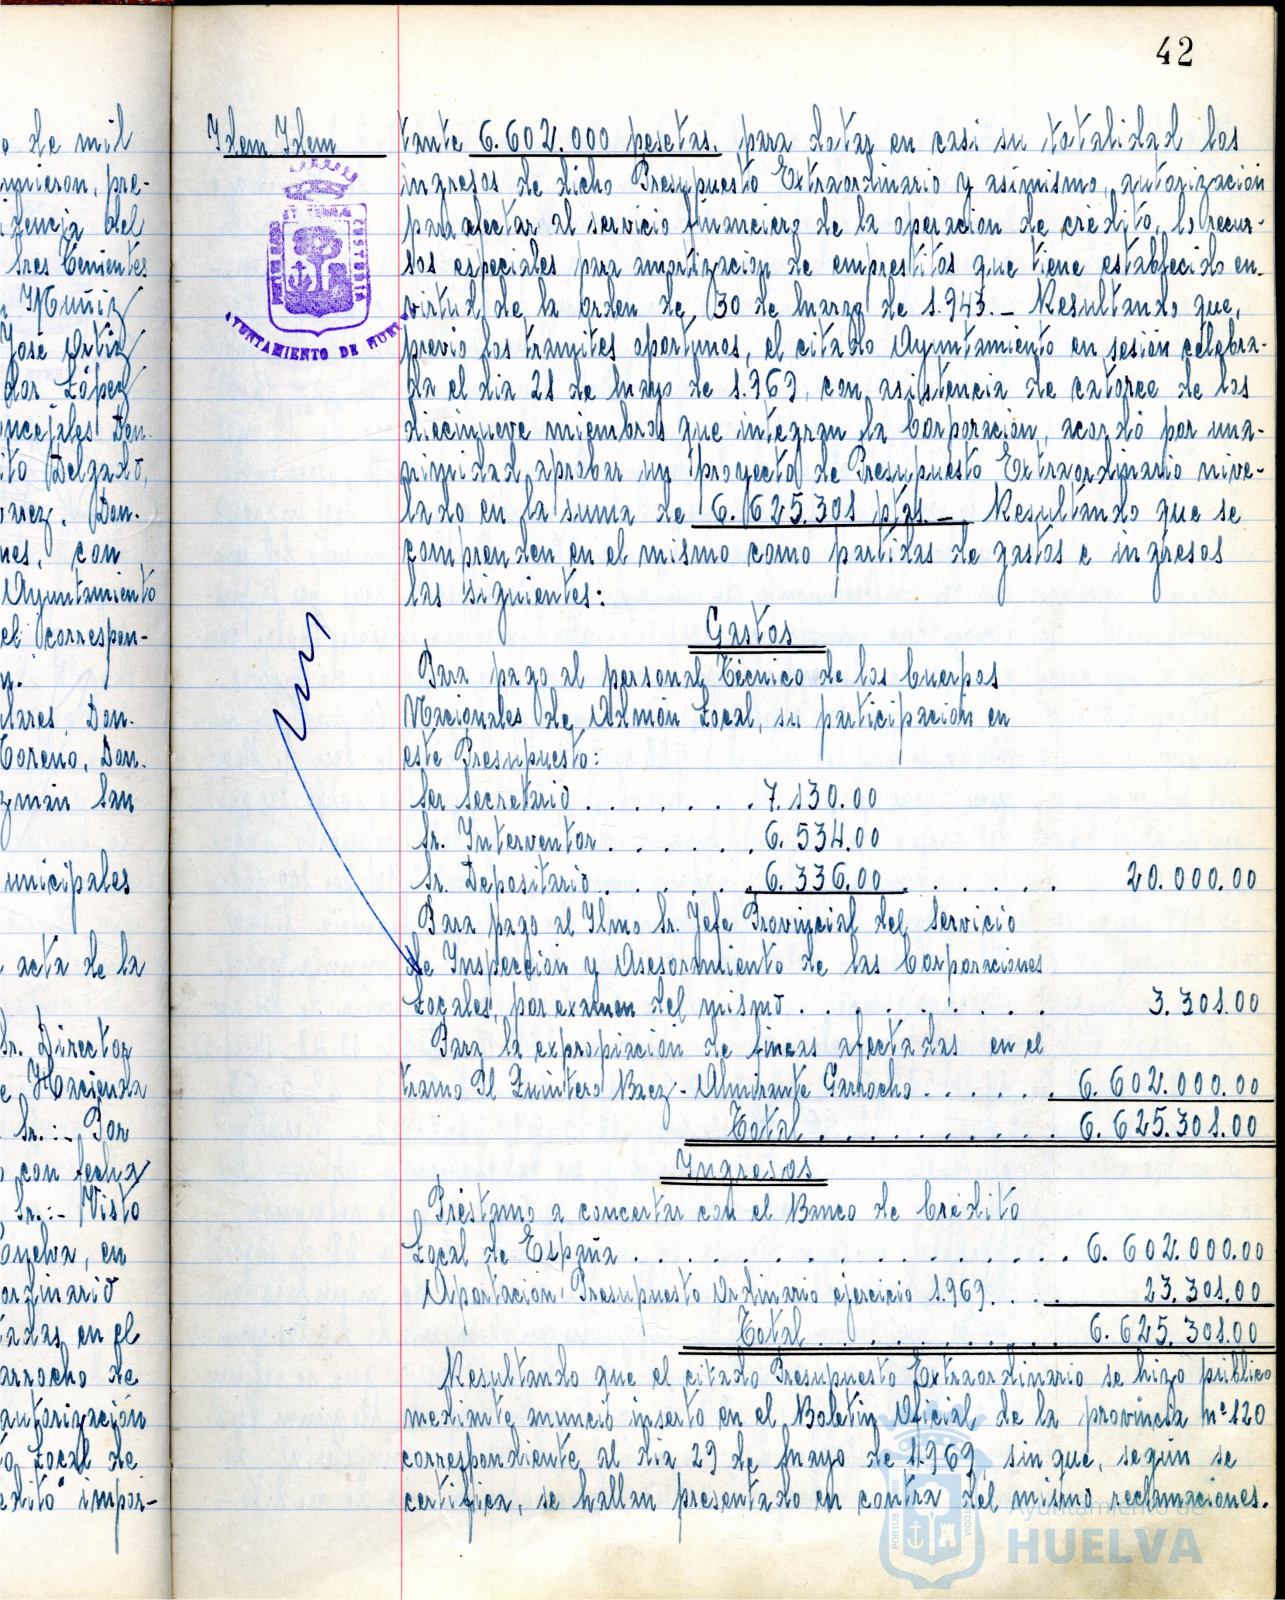 42
e de mil
mieron, pre-
idencia del
Sres Tenientes
n Muñiz
José Ortiz
dor López
oncejales Don
ito Delgado,
varez. Don.
nes, con
Ayuntamiento
el correspon-
n.
ulares, Don.
Toreno, Don.
zmán San
unicipales
acta de la
Sr. Director
e Hacienda
Sr.:- Por
o con fecha
Sr.:- Visto
onelva, en
ordinario
tadas en el
arrocho de
autorización
to Local de
édito" impor-
Idem Idem
PORTUS MARIS
ET TERRE
CUSTODIA
AYUNTAMIENTO DE HUELVA
tante 6.602.000 pesetas, para dotar en casi su totalidad los
ingresos de dicho Presupuesto Extraordinario y asimismo, autorización
para afectar al servicio financiero de la operación de crédito, lo recur-
sos especiales para amortización de emprestitos que tiene establecido en
virtud de la orden de 30 de marzo de 1.943.- Resultando que,
previo los tramites oportunos, el citado Ayuntamiento en sesión celebra-
da el dia 21 de mayo de 1.969, con asistencia de catorce de los
diecinueve miembros que integran la Corporación, acordó por una-
nimidad aprobar un proyecto de Presupuesto Extraordinario nive-
lado en la suma de 6.625.301 ptas.- Resultando que se
comprenden en el mismo como partidas de gastos e ingresos
las siguientes:
Gastos
Para pago al personal Técnico de los Cuerpos
Nacionales de Admón Local, su participación en
este Presupuesto:
Ser Secretario . . . . . . . 7.130.00
Sr. Interventor . . . . . . 6.534.00
Sr. Depositario . . . . . . 6.336.00 . . . . . . 20.000.00
Para pago al Ilmo Sr. Jefe Provincial del Servicio
de Inspección y Asesoramiento de las Corporaciones
Locales, por examen del mismo . . . . . . . . . 3.301.00
Para la expropiación de fincas afectadas en el
tramo Pl Quintero Baez - Almirante Garrocho . . . . . . 6.602.000.00
Total . . . . . . . . . . 6.625.301.00
Ingresos
Préstamo a concertar con el Banco de Crédito
Local de España . . . . . . . . . . . . . . . . . . 6.602.000.00
Aportación Presupuesto Ordinario ejercicio 1.969. . . . 23.301.00
Total . . . . . . . . . . 6.625.301.00
Resultando que el citado Presupuesto Extraordinario se hizo público
mediante anuncio inserto en el Boletín Oficial de la provincia nº 120
correspondiente al dia 29 de mayo de 1.969, sin que, según se
certifica, se hallan presentado en contra del mismo reclamaciones.
Ayuntamiento de
HUELVA